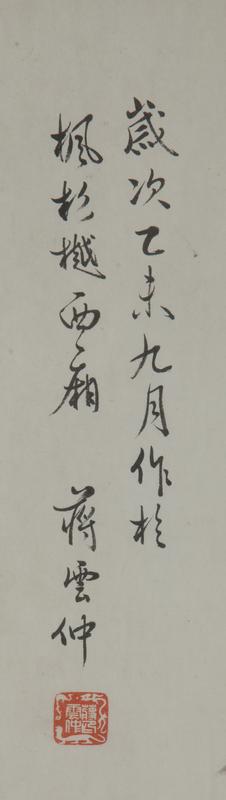 歲次乙未九月作於
楓杉樾西廂 蔣雲仲
蔣氏雲仲